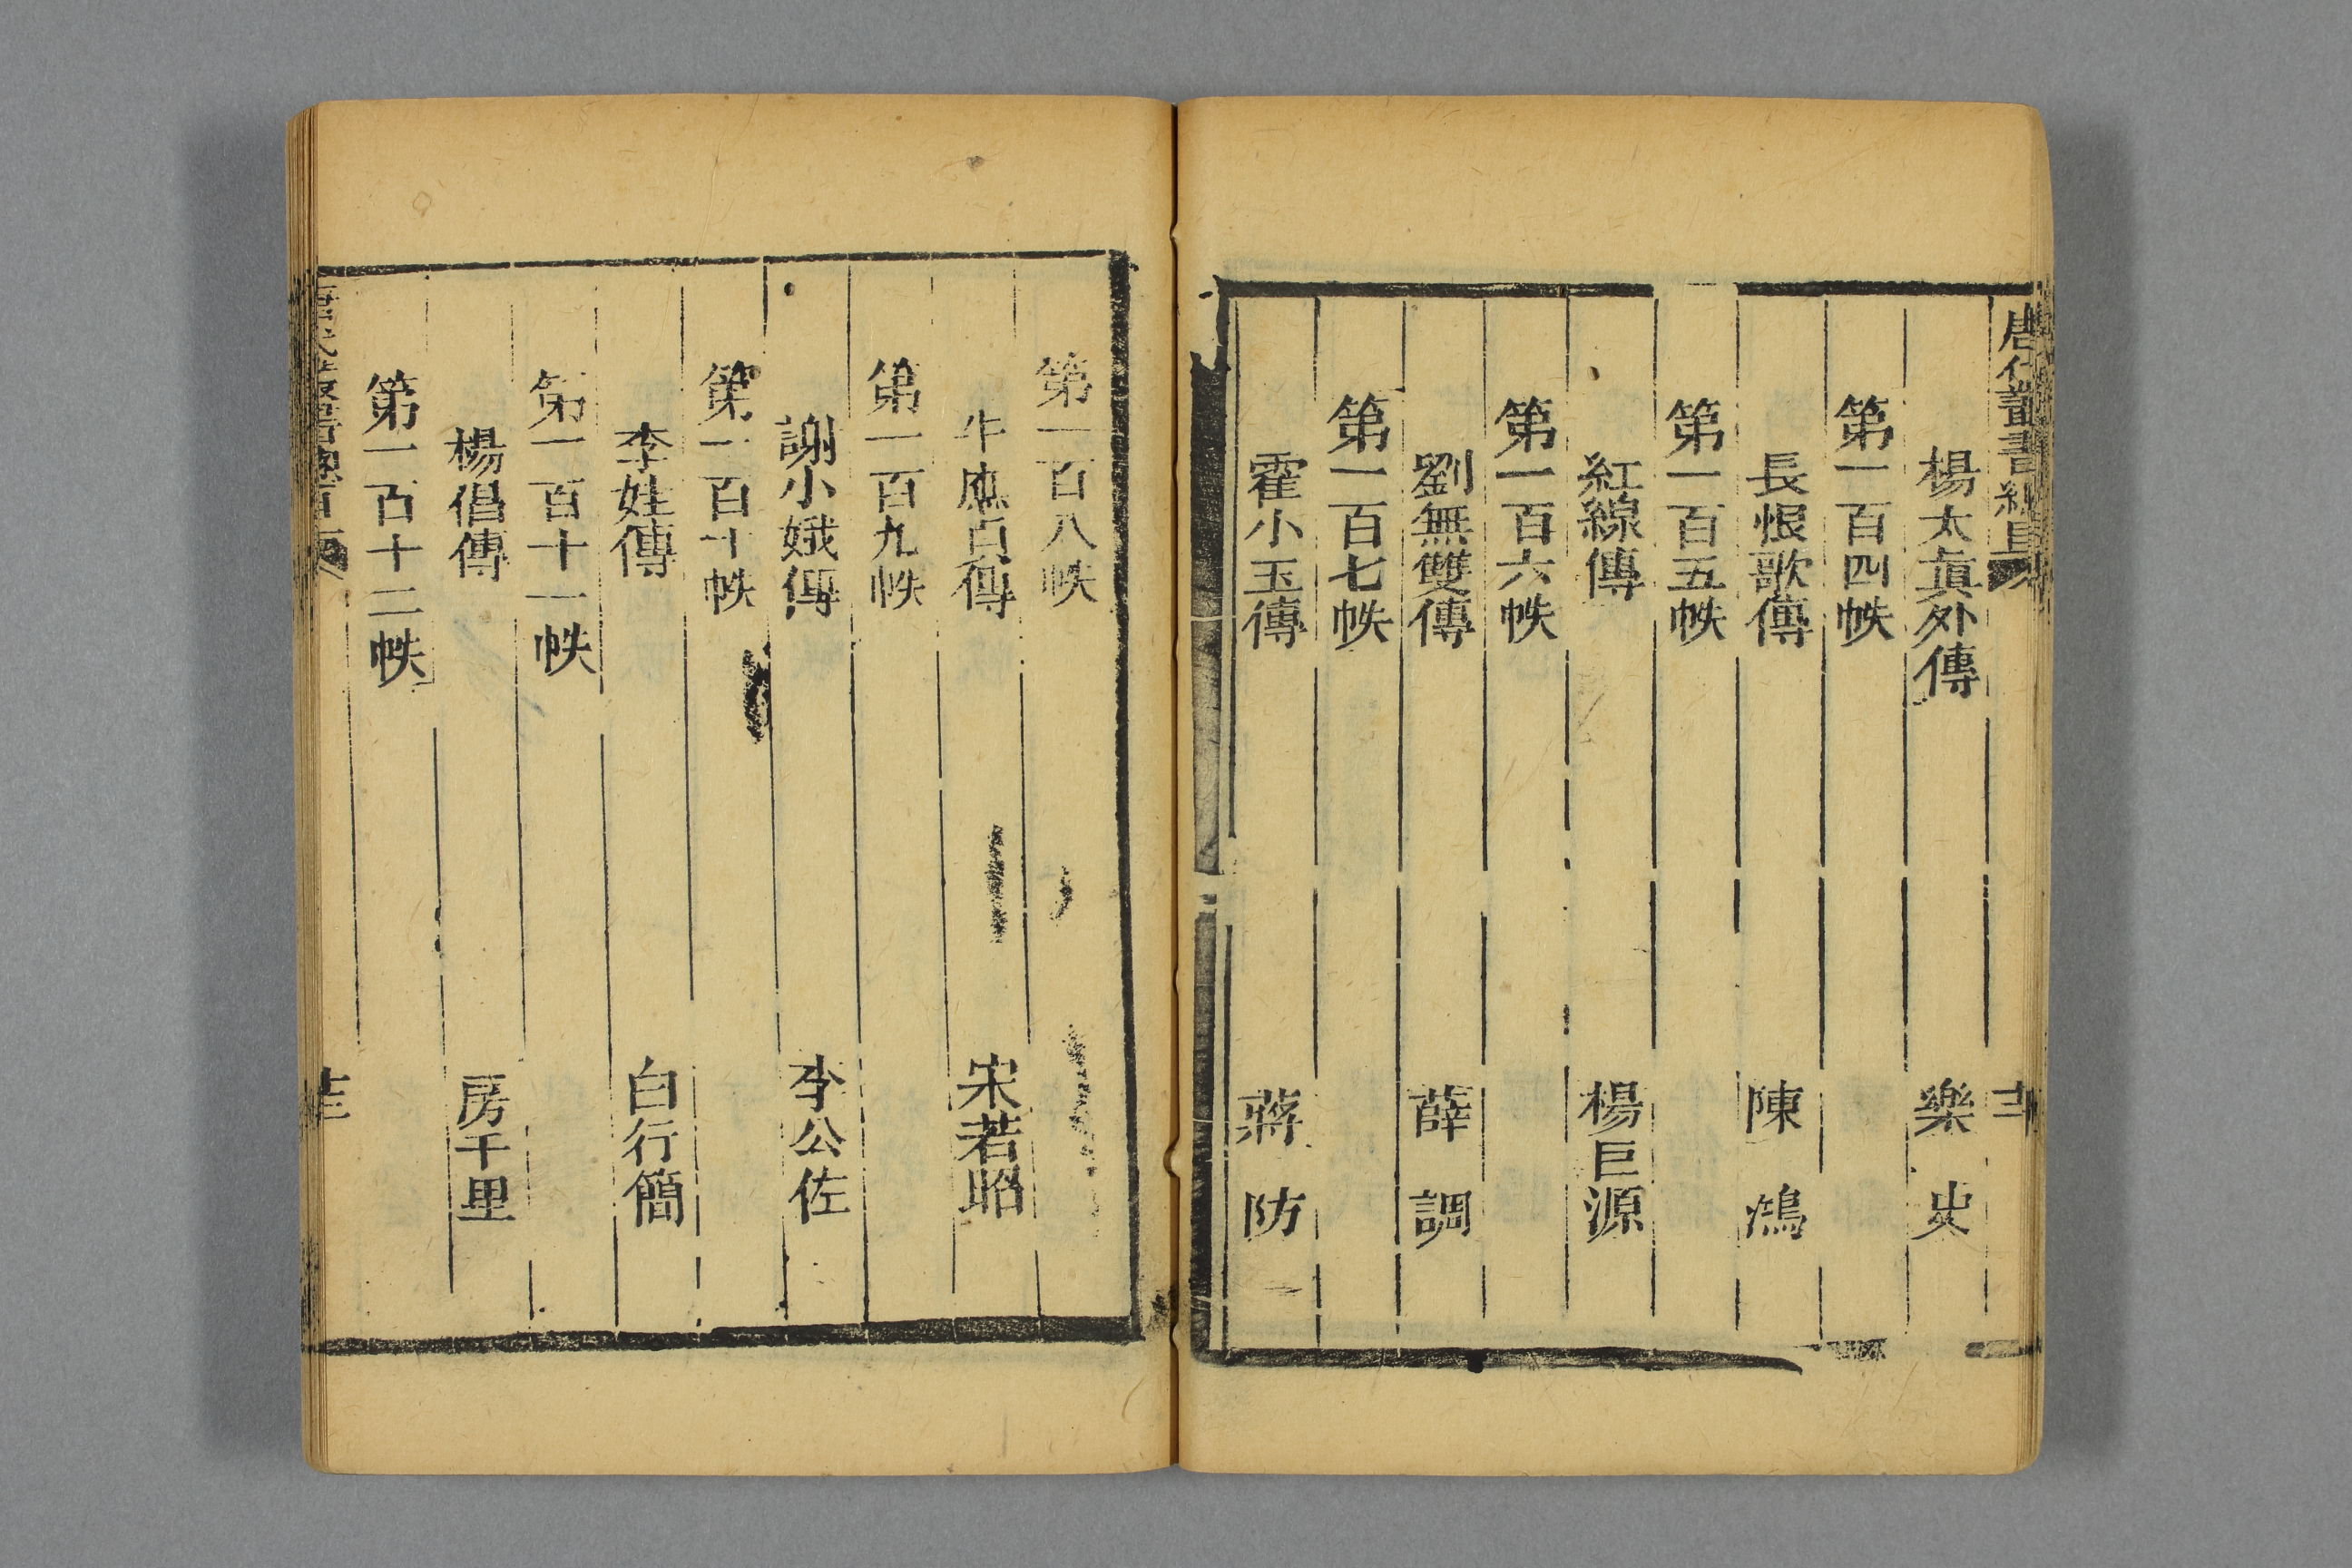 唐代叢書總目
楊太眞外傳 樂史
第一百四帙
長恨歌傳 陳鴻
第一百五帙
紅線傳 楊巨源
第一百六帙
劉無雙傳 薛調
第一百七帙
霍小玉傳 蔣防
第一百八帙
牛應貞傳 宋若昭
第一百九帙
謝小娥傳 李公佐
第一百十帙
李娃傳 白行簡
第一百十一帙
楊倡傳 房千里
第一百十二帙